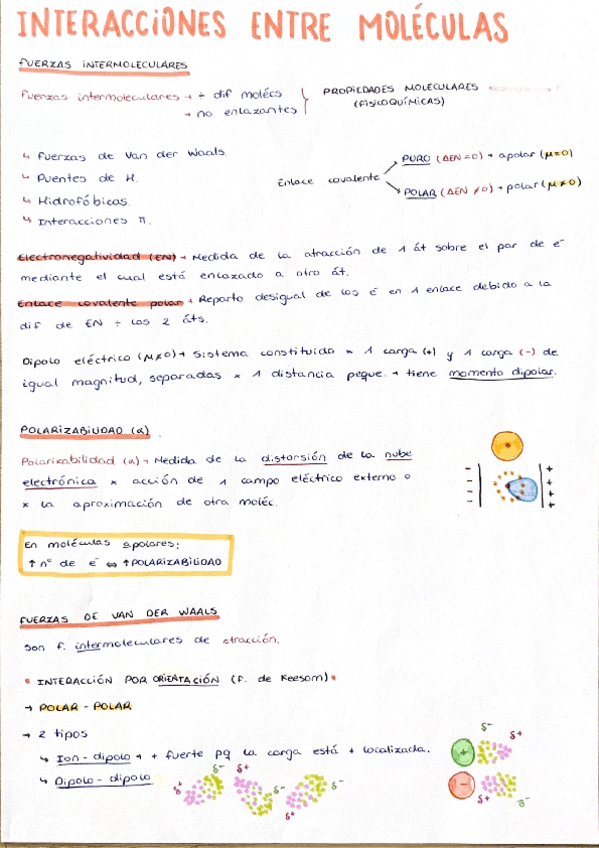 INTERACCIONES ENTRE MOLÉCULAS
FUERZAS INTERMOLECULARES
Fuerzas intermoleculares → + dif molécs
→ no enlazantes
PROPIEDADES MOLECULARES
(FISICOQUÍMICAS)
↳ Fuerzas de Van der Waals.
↳ Puentes de H.
↳ Hidrofóbicas.
↳ Interacciones π.
Enlace covalente
PURO (ΔEN=0) → apolar (μ=0)
POLAR (ΔEN≠0) → polar (μ≠0)
Electronegatividad (EN) → Medida de la atracción de 1 át sobre el par de e⁻
mediante el cual está enlazado a otro át.
Enlace covalente polar → Reparto desigual de los e⁻ en 1 enlace debido a la
dif de EN ÷ los 2 áts.
Dipolo eléctrico (μ≠0) → Sistema constituido × 1 carga (+) y 1 carga (-) de
igual magnitud, separadas × 1 distancia peque. → tiene momento dipolar.
POLARIZABILIDAD (α)
Polarizabilidad (α) → Medida de la distorsión de la nube
electrónica × acción de 1 campo eléctrico externo o
× la aproximación de otra moléc.
- - - -
+ + + +
En moléculas apolares:
↑ nº de e⁻ ⇔ ↑ POLARIZABILIDAD
FUERZAS DE VAN DER WAALS
Son f. intermoleculares de atracción.
• INTERACCIÓN POR ORIENTACIÓN (F. de Keesom) •
→ POLAR - POLAR
→ 2 tipos
↳ Ion - dipolo → + fuerte pq la carga está + localizada.
↳ Dipolo - dipolo
δ⁺ δ⁻ δ⁺ δ⁻ δ⁺ δ⁻
+ δ⁻ δ⁺
- δ⁺ δ⁻